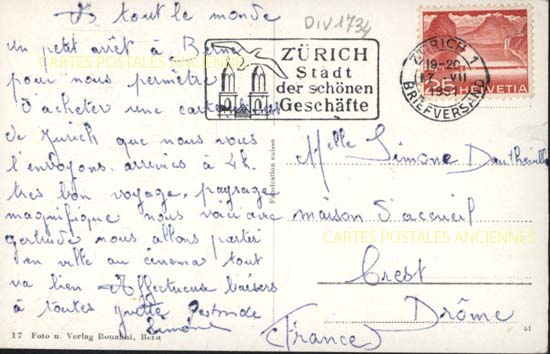 DIV1734
Ds tout le monde
un petit arrêt à Berne
pour nous permettre
d'acheter une carte
de Zurich que nous vous
l'envoyons. arrivées à 4h.
très bon voyage, paysage
magnifique nous voici avec
gertrude nous allons partir
en ville au cinema tout
va bien Affectueux baisers
à toutes yvette Gertrude
Simone
17 Foto u. Verlag Bonanni, Bern
Fabrication suisse
ZÜRICH
Stadt
der schönen
Geschäfte
ZÜRICH 1
19-20
17. VII
BRIEFVERSAND
HELVETIA
Melle Simone Dautheville
maison d'acceuil
Crest
Drôme
(France)
51
CARTES POSTALES ANCIENNES
CARTES POSTALES ANCIENNES